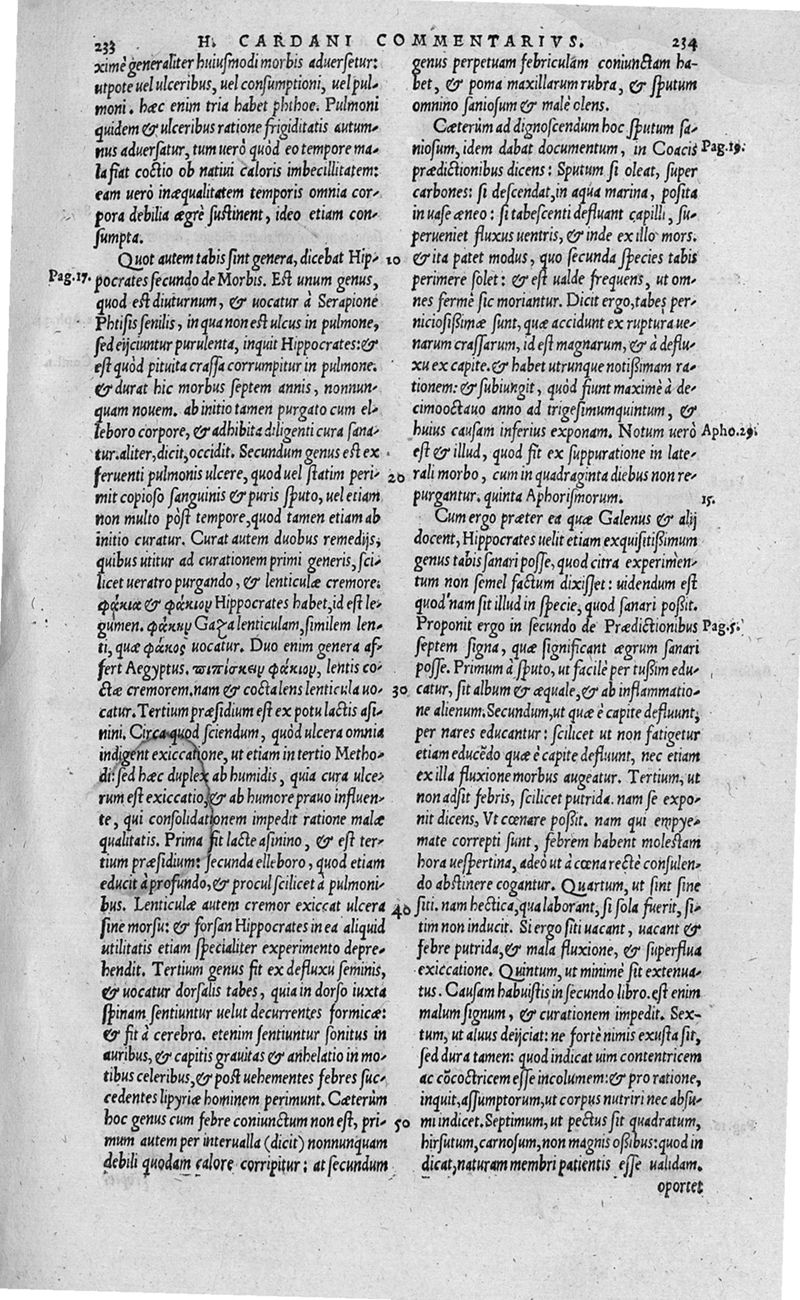 233 H. CARDANI COMMENTARIVS. 234
ximè generaliter huiusmodi morbis aduersetur:
utpote uel ulceribus, uel consumptioni, uel pul-
moni. hæc enim tria habet phthoe. Pulmoni
quidem & ulceribus ratione frigiditatis autum-
nus aduersatur, tum uerò quòd eo tempore ma-
la fiat coctio ob natiui caloris imbecillitatem:
eam uerò inæqualitatem temporis omnia cor-
pora debilia ægrè sustinent, ideo etiam con-
sumpta.
Quot autem tabis sint genera, dicebat Hip- 10
Pag.17. pocrates secundo de Morbis. Est unum genus,
quod est diuturnum, & uocatur à Serapione
Phtisis senilis, in qua non est ulcus in pulmone,
sed eijciuntur purulenta, inquit Hippocrates: &
est quòd pituita crassa corrumpitur in pulmone.
& durat hic morbus septem annis, nonnun-
quam nouem. ab initio tamen purgato cum el-
leboro corpore, & adhibita diligenti cura sana-
tur. aliter, dicit, occidit. Secundum genus est ex
feruenti pulmonis ulcere, quod uel statim peri- 20
mit copioso sanguinis & puris sputo, uel etiam
non multo pòst tempore, quod tamen etiam ab
initio curatur. Curat autem duobus remedijs,
quibus utitur ad curationem primi generis, sci-
licet ueratro purgando, & lenticulæ cremore.
φάκια & φάκιον Hippocrates habet, id est le-
gumen. φάκην Gaza lenticulam, similem len-
ti, quæ φάκος uocatur. Duo enim genera af-
fert Aegyptus. πιπίσκειν φάκιον, lentis co-
ctæ cremorem. nam & cocta lens lenticula uo- 30
catur. Tertium præsidium est ex potu lactis asi-
nini. Circa quod sciendum, quòd ulcera omnia
indigent exiccatione, ut etiam in tertio Metho-
di: sed hæc duplex ab humidis, quia cura ulce-
rum est exiccatio, & ab humore prauo influen-
te, qui consolidationem impedit ratione malæ
qualitatis. Prima fit lacte asinino, & est ter-
tium præsidium: secunda elleboro, quod etiam
educit à profundo, & procul scilicet à pulmoni-
bus. Lenticulæ autem cremor exiccat ulcera 40
sine morsu: & forsan Hippocrates in ea aliquid
utilitatis etiam specialiter experimento depre-
hendit. Tertium genus fit ex defluxu seminis,
& uocatur dorsalis tabes, quia in dorso iuxta
spinam sentiuntur uelut decurrentes formicæ:
& fit à cerebro. etenim sentiuntur sonitus in
auribus, & capitis grauitas & anhelatio in mo-
tibus celeribus, & post uehementes febres suc-
cedentes lipyriæ hominem perimunt. Cæterùm
hoc genus cum febre coniunctum non est, pri- 50
mum autem per interualla (dicit) nonnunquam
debili quodam calore corripitur: at secundum
genus perpetuam febriculam coniunctam ha-
bet, & poma maxillarum rubra, & sputum
omnino saniosum & malè olens.
Cæterùm ad dignoscendum hoc sputum sa-
niosum, idem dabat documentum, in Coacis Pag.19.
prædictionibus dicens: Sputum si oleat, super
carbones: si descendat, in aqua marina, posita
in uase æneo: si tabescenti defluant capilli, su-
perueniet fluxus uentris, & inde ex illo mors.
& ita patet modus, quo secunda species tabis
perimere solet: & est ualde frequens, ut om-
nes fermè sic moriantur. Dicit ergo, tabes per-
niciosißimæ sunt, quæ accidunt ex ruptura ue-
narum crassarum, id est magnarum, & à deflu-
xu ex capite. & habet utrunque notißimam ra-
tionem: & subiungit, quòd fiunt maximè à de-
cimooctauo anno ad trigesimumquintum, &
huius causam inferius exponam. Notum uerò Apho.29.
est & illud, quod fit ex suppuratione in late-
rali morbo, cum in quadraginta diebus non re-
purgantur. quinta Aphorismorum. 15.
Cum ergo præter ea quæ Galenus & alij
docent, Hippocrates uelit etiam exquisitißimum
genus tabis sanari posse, quod citra experimen-
tum non semel factum dixisset: uidendum est
quod'nam sit illud in specie, quod sanari poßit.
Proponit ergo in secundo de Prædictionibus Pag.5.
septem signa, quæ significant ægrum sanari
posse. Primum à sputo, ut facilè per tußim edu-
catur, sit album & æquale, & ab inflammatio-
ne alienum. Secundum, ut quæ è capite defluunt,
per nares educantur: scilicet ut non fatigetur
etiam educẽdo quæ è capite defluunt, nec etiam
ex illa fluxione morbus augeatur. Tertium, ut
non adsit febris, scilicet putrida. nam se expo-
nit dicens, Vt cœnare poßit. nam qui empye-
mate correpti sunt, febrem habent molestam
hora uespertina, adeò ut à cœna rectè consulen-
do abstinere cogantur. Quartum, ut sint sine
siti. nam hectica, qua laborant, si sola fuerit, si-
tim non inducit. Si ergo siti uacant, uacant &
febre putrida, & mala fluxione, & superflua
exiccatione. Quintum, ut minimè sit extenua-
tus. Causam habuistis in secundo libro. est enim
malum signum, & curationem impedit. Sex-
tum, ut aluus deijciat: ne fortè nimis exusta sit,
sed dura tamen: quod indicat uim contentricem
ac cõcoctricem esse incolumem: & pro ratione,
inquit, assumptorum, ut corpus nutriri nec absu-
mi indicet. Septimum, ut pectus sit quadratum,
hirsutum, carnosum, non magnis oßibus: quod in
dicat, naturam membri patientis esse ualidam.
oportet